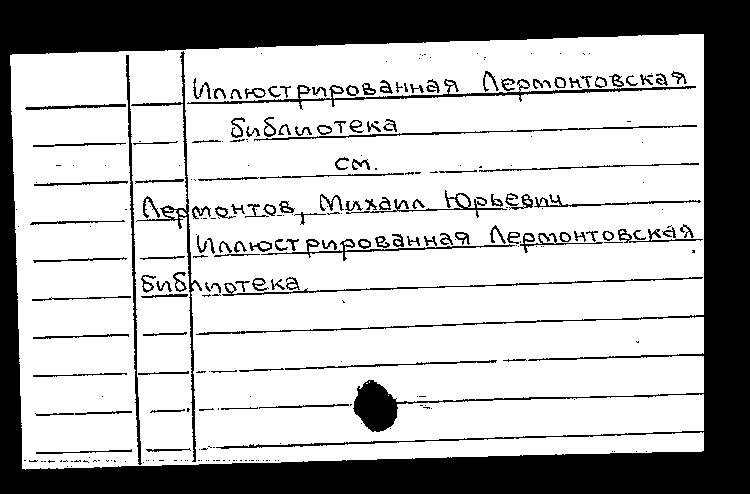 Иллюстрированная Лермонтовская
библиотека
см.
Лермонтов, Михаил Юрьевич
Иллюстрированная Лермонтовская
библиотека.